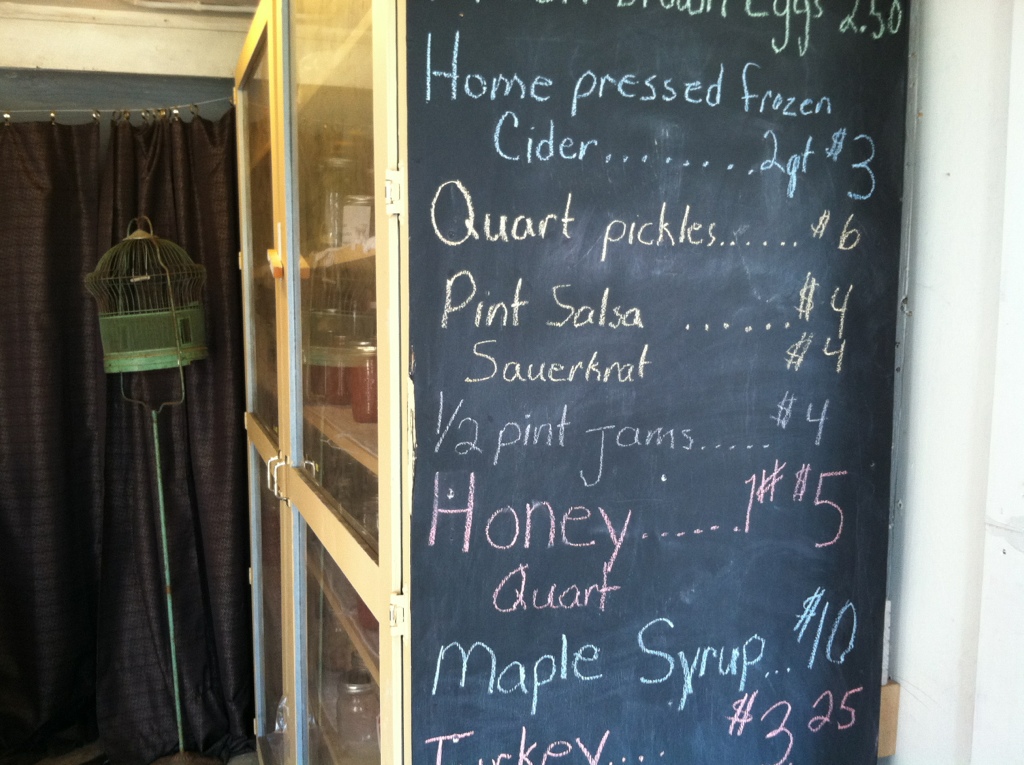 Brown Eggs 2.50
Home pressed frozen
Cider........2qt $3
Quart pickles...... $6
Pint Salsa .......$4
Sauerkrat $4
1/2 pint jams..... $4
Honey.....1# $5
Quart
Maple Syrup... $10
Turkey... $3.25